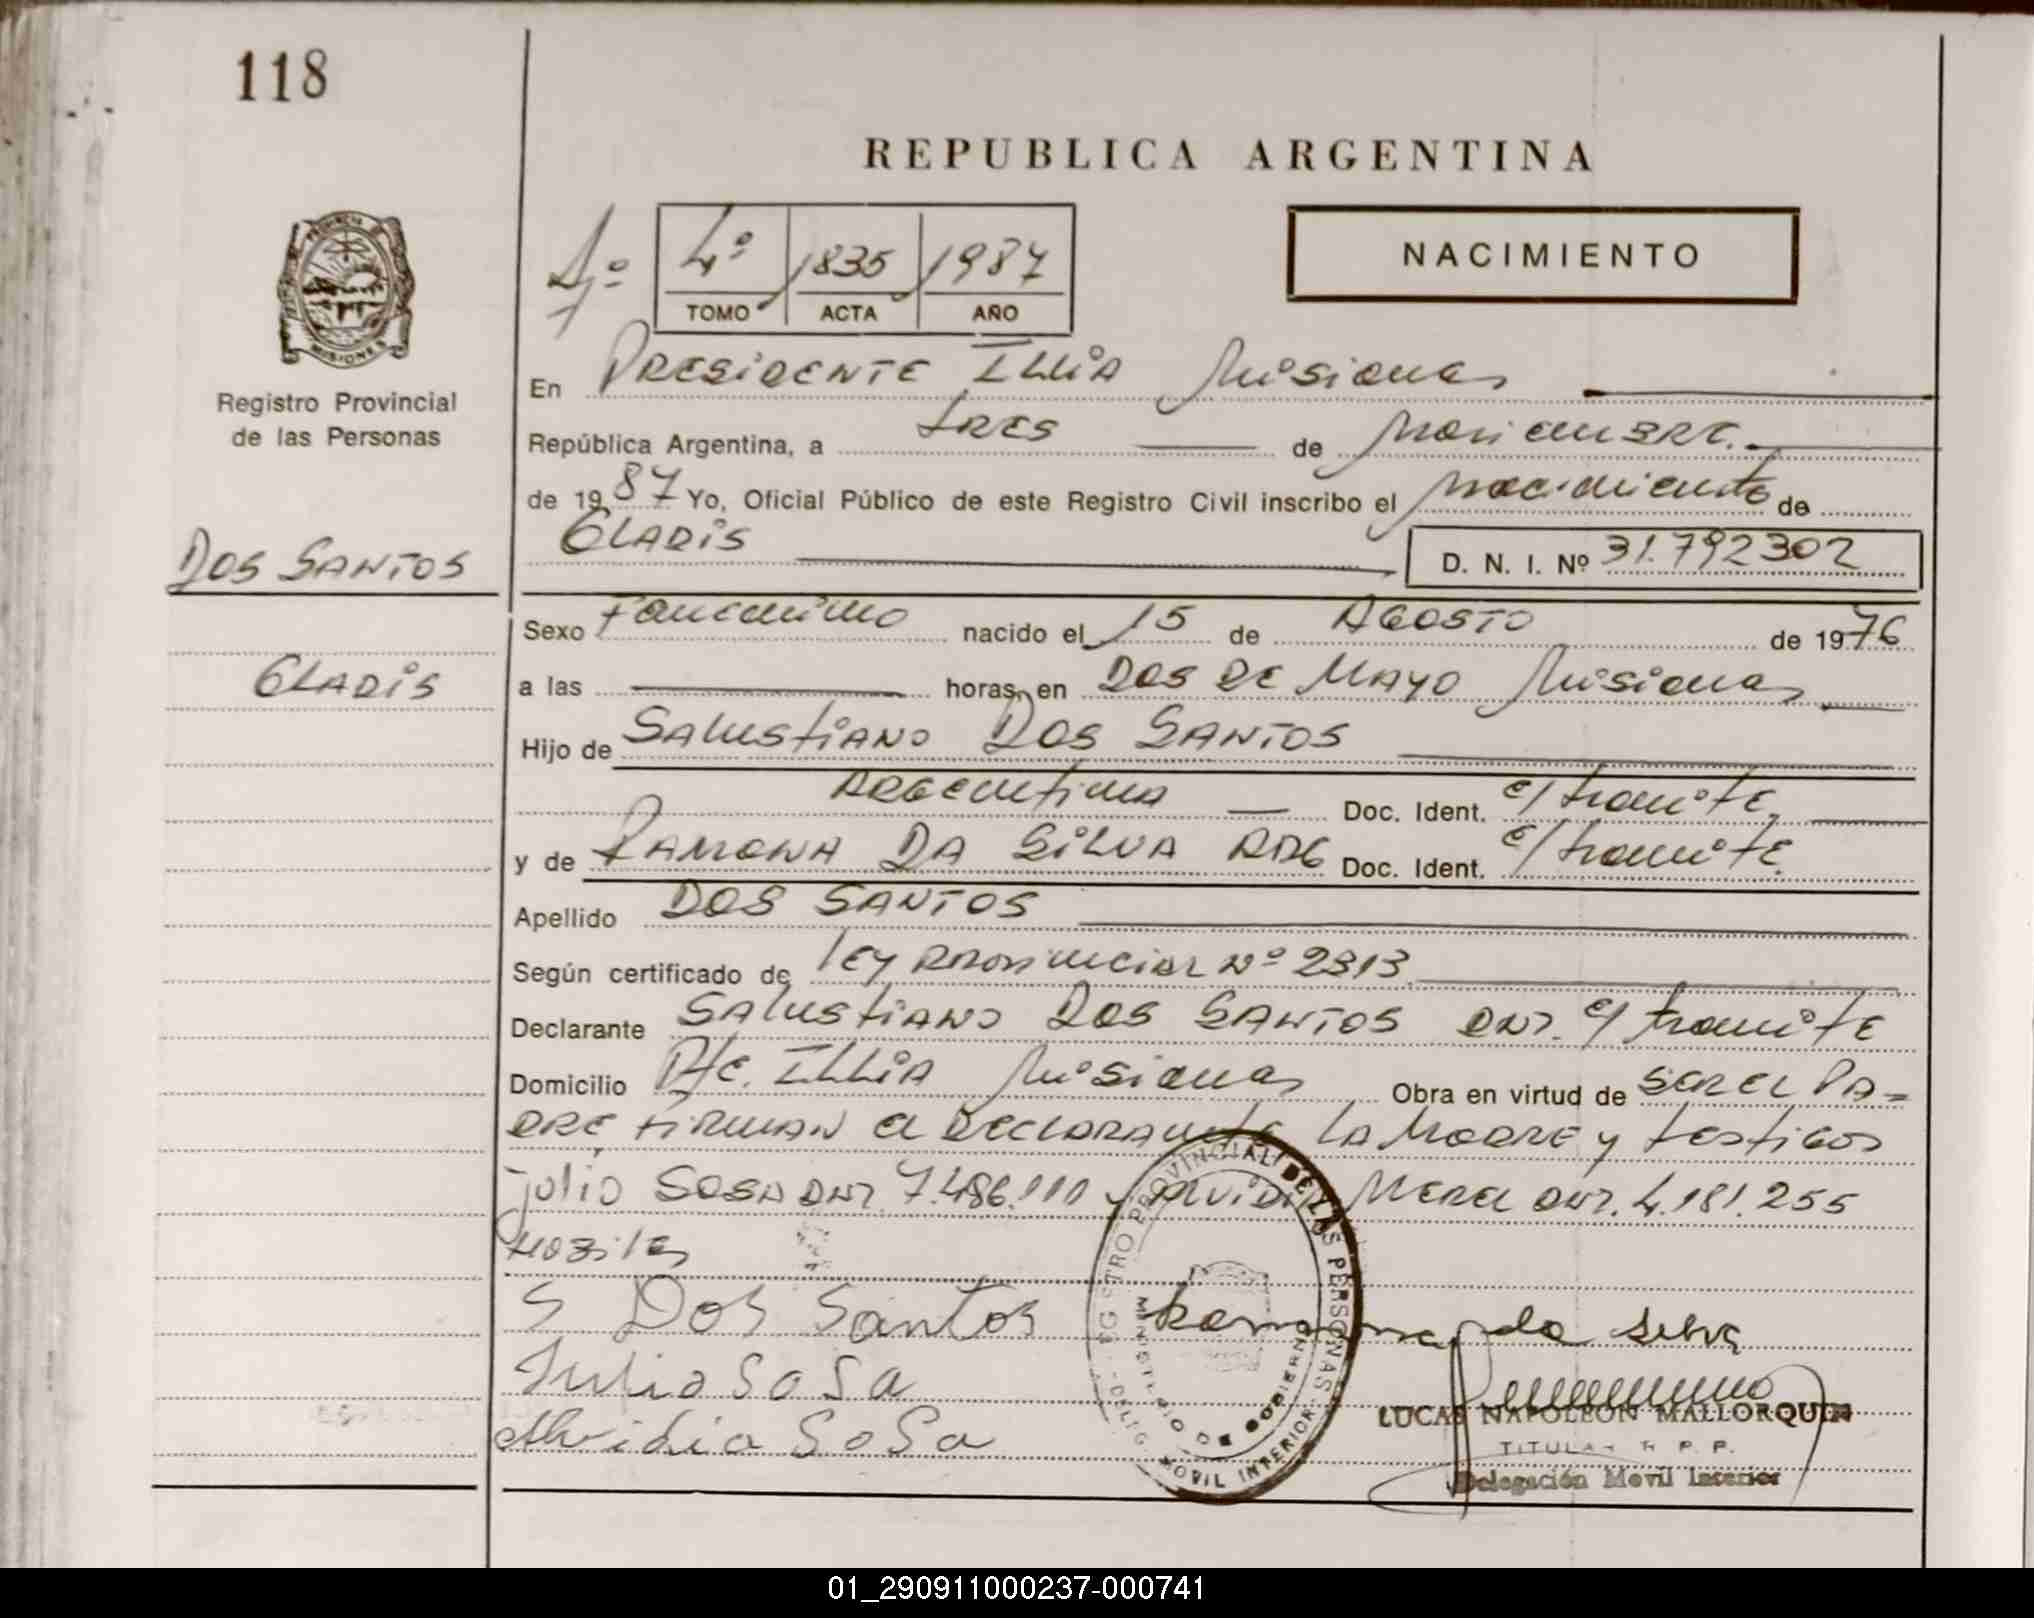 118
REPUBLICA ARGENTINA
PROVINCIA DE
MISIONES
Registro Provincial
de las Personas
4º 1835 1987
TOMO ACTA AÑO
NACIMIENTO
En PRESIDENTE ILLIA Misiones
República Argentina, a tres de Noviembre.
de 1987 Yo, Oficial Público de este Registro Civil inscribo el nacimiento de
GLADIS D. N. I. Nº 31.792302
DOS SANTOS
GLADIS
Sexo Femenino nacido el 15 de AGOSTO de 1976
a las horas, en DOS DE MAYO Misiones
Hijo de SALUSTIANO DOS SANTOS
ARGENTINA Doc. Ident. e/ tramite,
y de RAMONA DA SILVA ARG Doc. Ident. e/ tramite
Apellido DOS SANTOS
Según certificado de ley provincial Nº 2313
Declarante SALUSTIANO DOS SANTOS DNI. e/ tramite
Domicilio Pte. ILLIA Misiones Obra en virtud de SER EL PA-
DRE FIRMAN El DECLARANTE LA MADRE y testigos
Julio SOSA DNI. 7.486.110 y DNI. 4.181.255
S Dos Santos Ramona da Silva
Julio Sosa
Alvidia Sosa
REGISTRO PROVINCIAL DE LAS PERSONAS
MINISTERIO DE GOBIERNO
DELEG. MOVIL INTERIOR
LUCAS NAPOLEON MALLORQUIN
TITULAR R. P. P.
Delegación Movil Interior
01_290911000237-000741